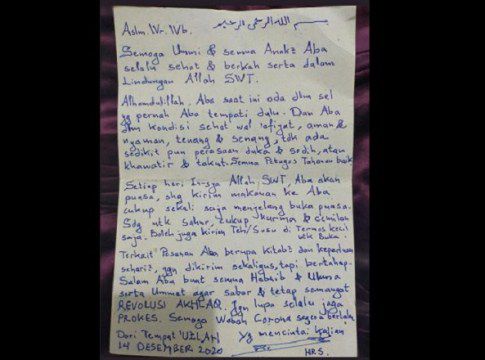 بسم الله الرحمن الرحيم
Aslm. Wr. Wb.
Semoga Ummi & semua Anak2 Aba
selalu sehat & berkah serta dalam
Lindungan Allah SWT.
Alhamdulillah, Aba saat ini ada dlm sel
yg pernah Aba tempati dulu. Dan Aba
dlm kondisi sehat wal 'afiyat, aman &
nyaman, tenang & senang, tdk ada
sedikit pun perasaan duka & sedih, atau
khawatir & takut. Semua Petugas Tahanan baik
Setiap hari In-sya Allah SWT, Aba akan
puasa, shg kirim makanan ke Aba
cukup sekali saja menjelang buka puasa.
Sdg utk sahur, cukup kurma & cemilan
saja. Boleh juga kirim Teh/Susu di Termos kecil
utk Buka.
Terkait Pesanan Aba berupa kitab2 dan keperluan
sehari2, jgn dikirim sekaligus, tapi bertahap.
Salam Aba buat semua Habaib & Ulama
serta Ummat agar sabar & tetap semangat
REVOLUSI AKHLAQ. Jgn lupa selalu jaga
PROKES. Semoga Wabah Corona segera berlalu.
Dari Tempat 'UZLAH
Yg mencintai kalian
14 DESEMBER 2020
HRS.